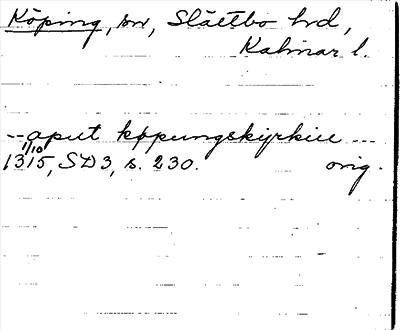 Köping, sn, Slättbo hrd,
Kalmar l.
-- aput køpungskyrkiu ---
1/10
1315, SD 3, s. 230. orig.